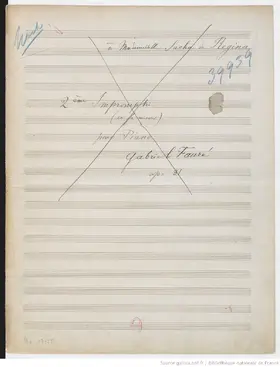 à Mademoiselle Sacha de Regina
39959
2ème Impromptu
(en fa mineur)
pour Piano
Gabriel Fauré
op. 31
Source gallica.bnf.fr / Bibliothèque nationale de France